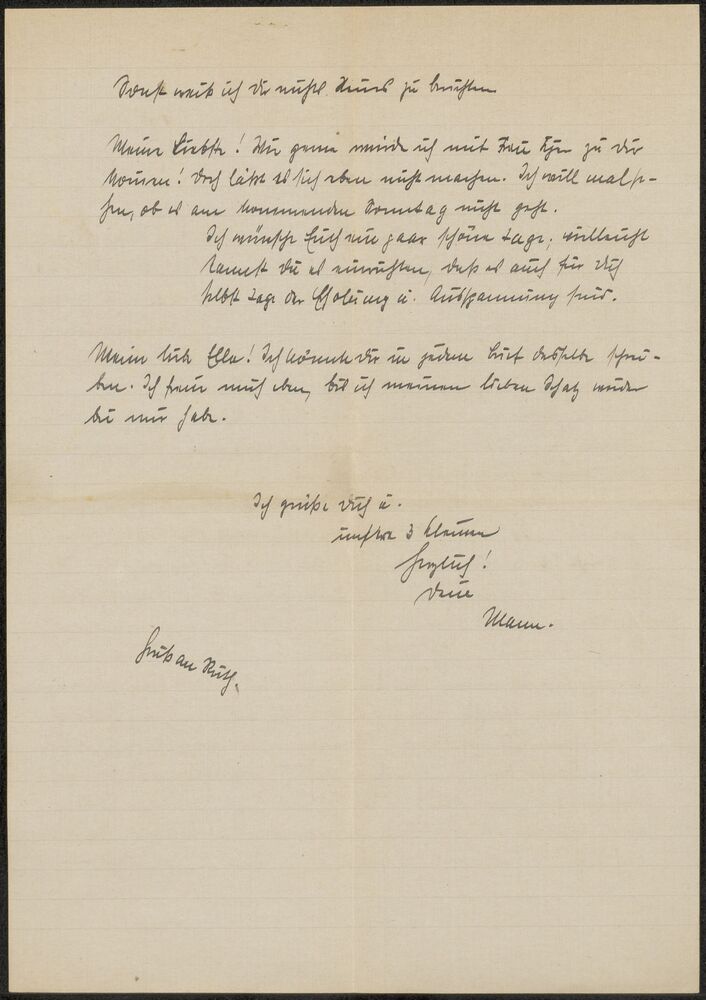 Sonst weiß ich Dir nichts Neues zu berichten
Meine Liebste! Wie gerne würde ich mit Frau zu Dir
kommen! Doch läßt es sich eben nicht machen. Ich will mal se-
hen, ob es am kommenden Sonntag nicht geht.
Ich wünsche Euch ein paar schöne Tage, vielleicht
kannst Du es einrichten, daß es auch für Dich
selbst Tage der Erholung u. Ausspannung sind.
Meine liebe Ella! Ich könnte Dir in jedem Brief dasselbe schrei-
ben. Ich freue mich eben, bis ich meinen lieben Schatz wieder
bei mir habe.
Ich grüße Dich u.
unsere 3 kleinen
herzlich!
Dein
Mann.
Gruß an Ruth.